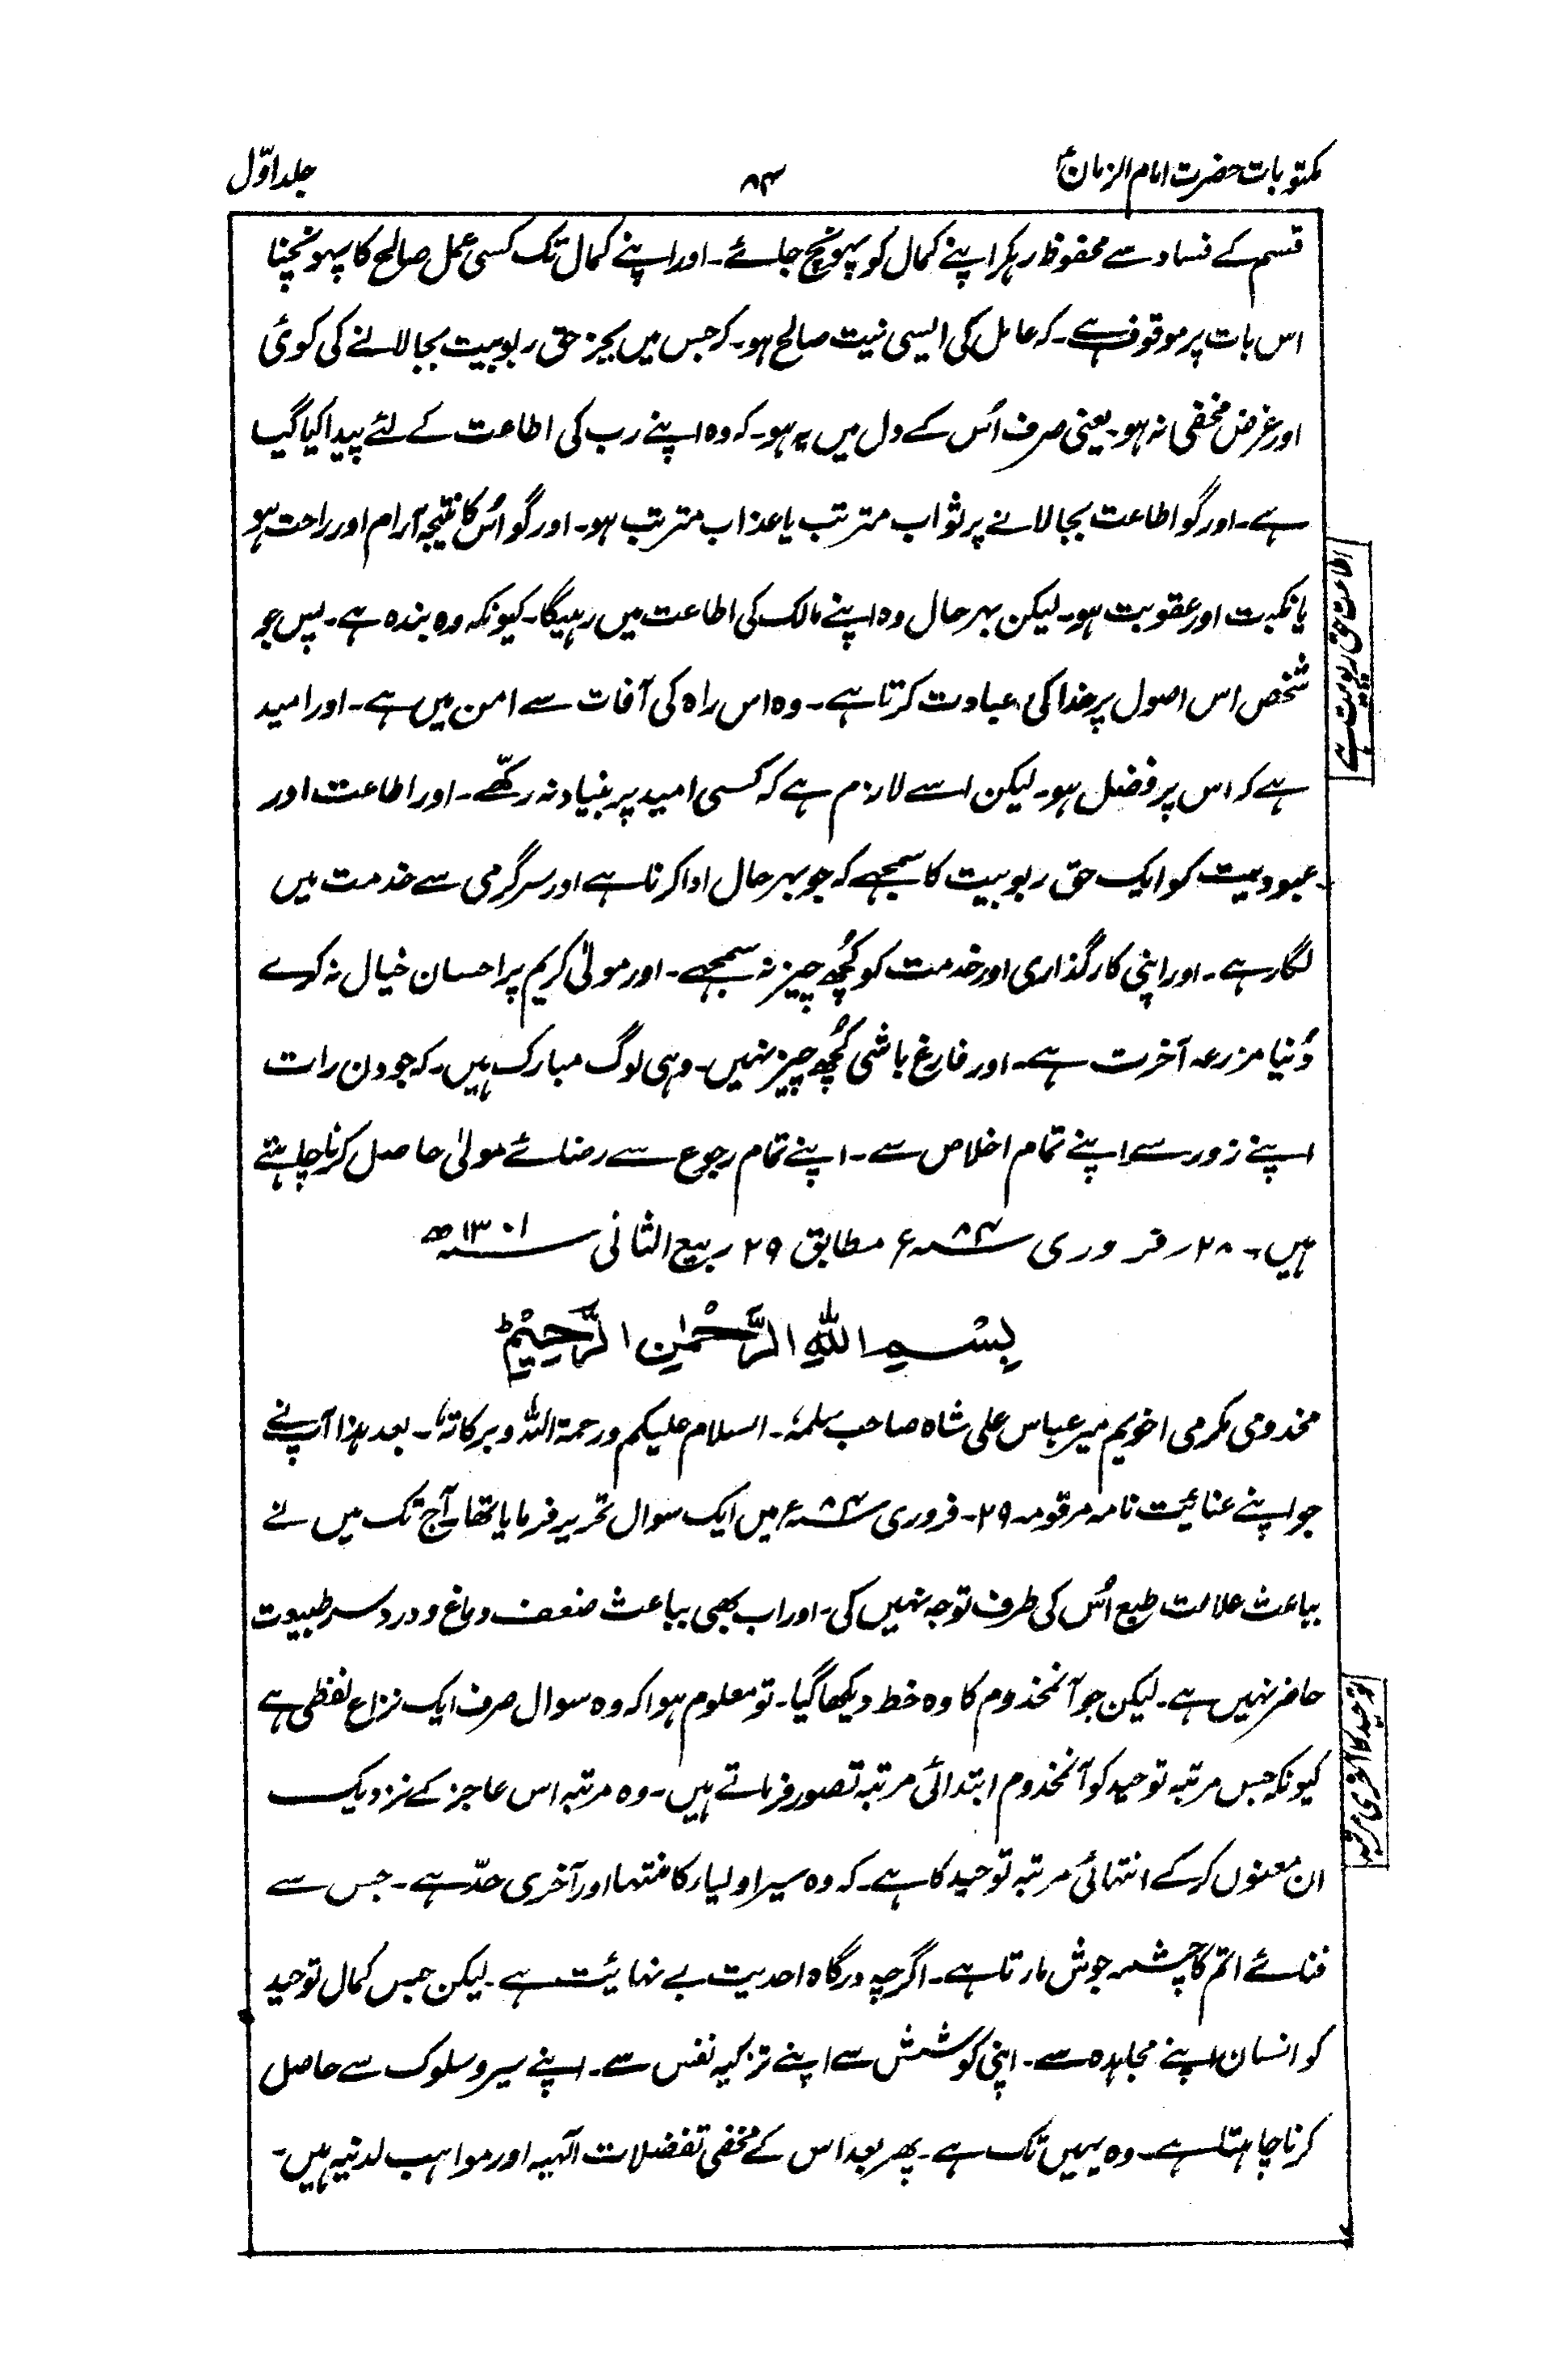 مکتوبات حضرت امام الزمانؑ
۸۴
جلد اوّل
قسم کے فساد سے محفوظ رہکر اپنے کمال کو پہونچ جائے۔ اور اپنے کمال تک کسی عمل صالح کا پہونچنا
اس بات پر موقوف ہے۔ کہ عامل کی ایسی نیت صالح ہو۔ کہ جس میں بجز حق ربوبیت بجا لانے کی کوئی
اور غرض مخفی نہ ہو۔ یعنی صرف اُس کے دل میں یہ ہو۔ کہ وہ اپنے رب کی اطاعت کے لئے پیدا کیا گیا
ہے۔ اور گو اطاعت بجا لانے پر ثواب مترتب یا عذاب مترتب ہو۔ اور گو اُس کا نتیجہ آرام اور راحت ہو
یا نکبت اور عقوبت ہو۔ لیکن بہرحال وہ اپنے مالک کی اطاعت میں رہیگا۔ کیونکہ وہ بندہ ہے۔ پس جو
شخص اس اصول پر خدا کی عبادت کرتا ہے۔ وہ اس راہ کی آفات سے امن میں ہے۔ اور امید
ہے کہ اس پر فضل ہو۔ لیکن اسے لازم ہے کہ کسی امید پر بنیاد نہ رکھّے۔ اور اطاعت اور
عبودیت کو ایک حق ربوبیت کا سمجھے کہ جو بہرحال ادا کرنا ہے اور سرگرمی سے خدمت میں
لگا رہے۔ اور اپنی کارگذاری اور خدمت کو کُچھ چیز نہ سمجھے۔ اور مولیٰ کریم پر احسان خیال نہ کرے
دُنیا مزرعہ آخرت ہے۔ اور فارغ باشی کُچھ چیز نہیں۔ وہی لوگ مبارک ہیں۔ کہ جو دن رات
اپنے زور سے اپنے تمام اخلاص سے۔ اپنے تمام رجوع سے رضائے مولیٰ حاصل کرنا چاہتے
ہیں۔ ۲۸ر فروری ۸۴ء مطابق ۲۹ ربیع الثانی ۱۳۰۱ھ
اطاعت حق ربوبیت ہے
بِسْمِ اللّٰهِ الرَّحْمٰنِ الرَّحِيْمِ
مخدومی مکرمی اخویم میر عباس علی شاہ صاحب سلمہٗ۔ السلام علیکم ورحمۃ اللہ وبرکاتہٗ۔ بعد ہٰذا آپنے
جو اپنے عنائیت نامہ مرقومہ ۲۹۔ فروری ۸۴ء میں ایک سوال تحریر فرمایا تھا۔ آج تک میں نے
بباعث علالت طبع اُس کی طرف توجہ نہیں کی۔ اور اب بھی بباعث ضعف دماغ و درد سر طبیعت
حاضر نہیں ہے۔ لیکن جو آنمخدوم کا وہ خط دیکھا گیا۔ تو معلوم ہوا کہ وہ سوال صرف ایک نزاع لفظی ہے
کیونکہ جس مرتبہ توحید کو آنمخدوم ابتدائی مرتبہ تصور فرماتے ہیں۔ وہ مرتبہ اس عاجز کے نزدیک
ان معنوں کرکے انتہائی مرتبہ توحید کا ہے۔ کہ وہ سیر اولیاء کا منتہا اور آخری حدّ ہے۔ جس سے
فنائے اتم کا چشمہ جوش مارتا ہے۔ اگرچہ درگاہ احدیت بے نہائیت ہے۔ لیکن جس کمال توحید
کو انسان اپنے مجاہدہ سے۔ اپنی کوشش سے اپنے تزکیہ نفس سے۔ اپنے سیر و سلوک سے حاصل
کرنا چاہتا ہے۔ وہ یہیں تک ہے۔ پھر بعد اس کے مخفی تفضلات الٰہیہ اور مواہب لدنیہ ہیں۔
توحید کا آخری مرتبہ